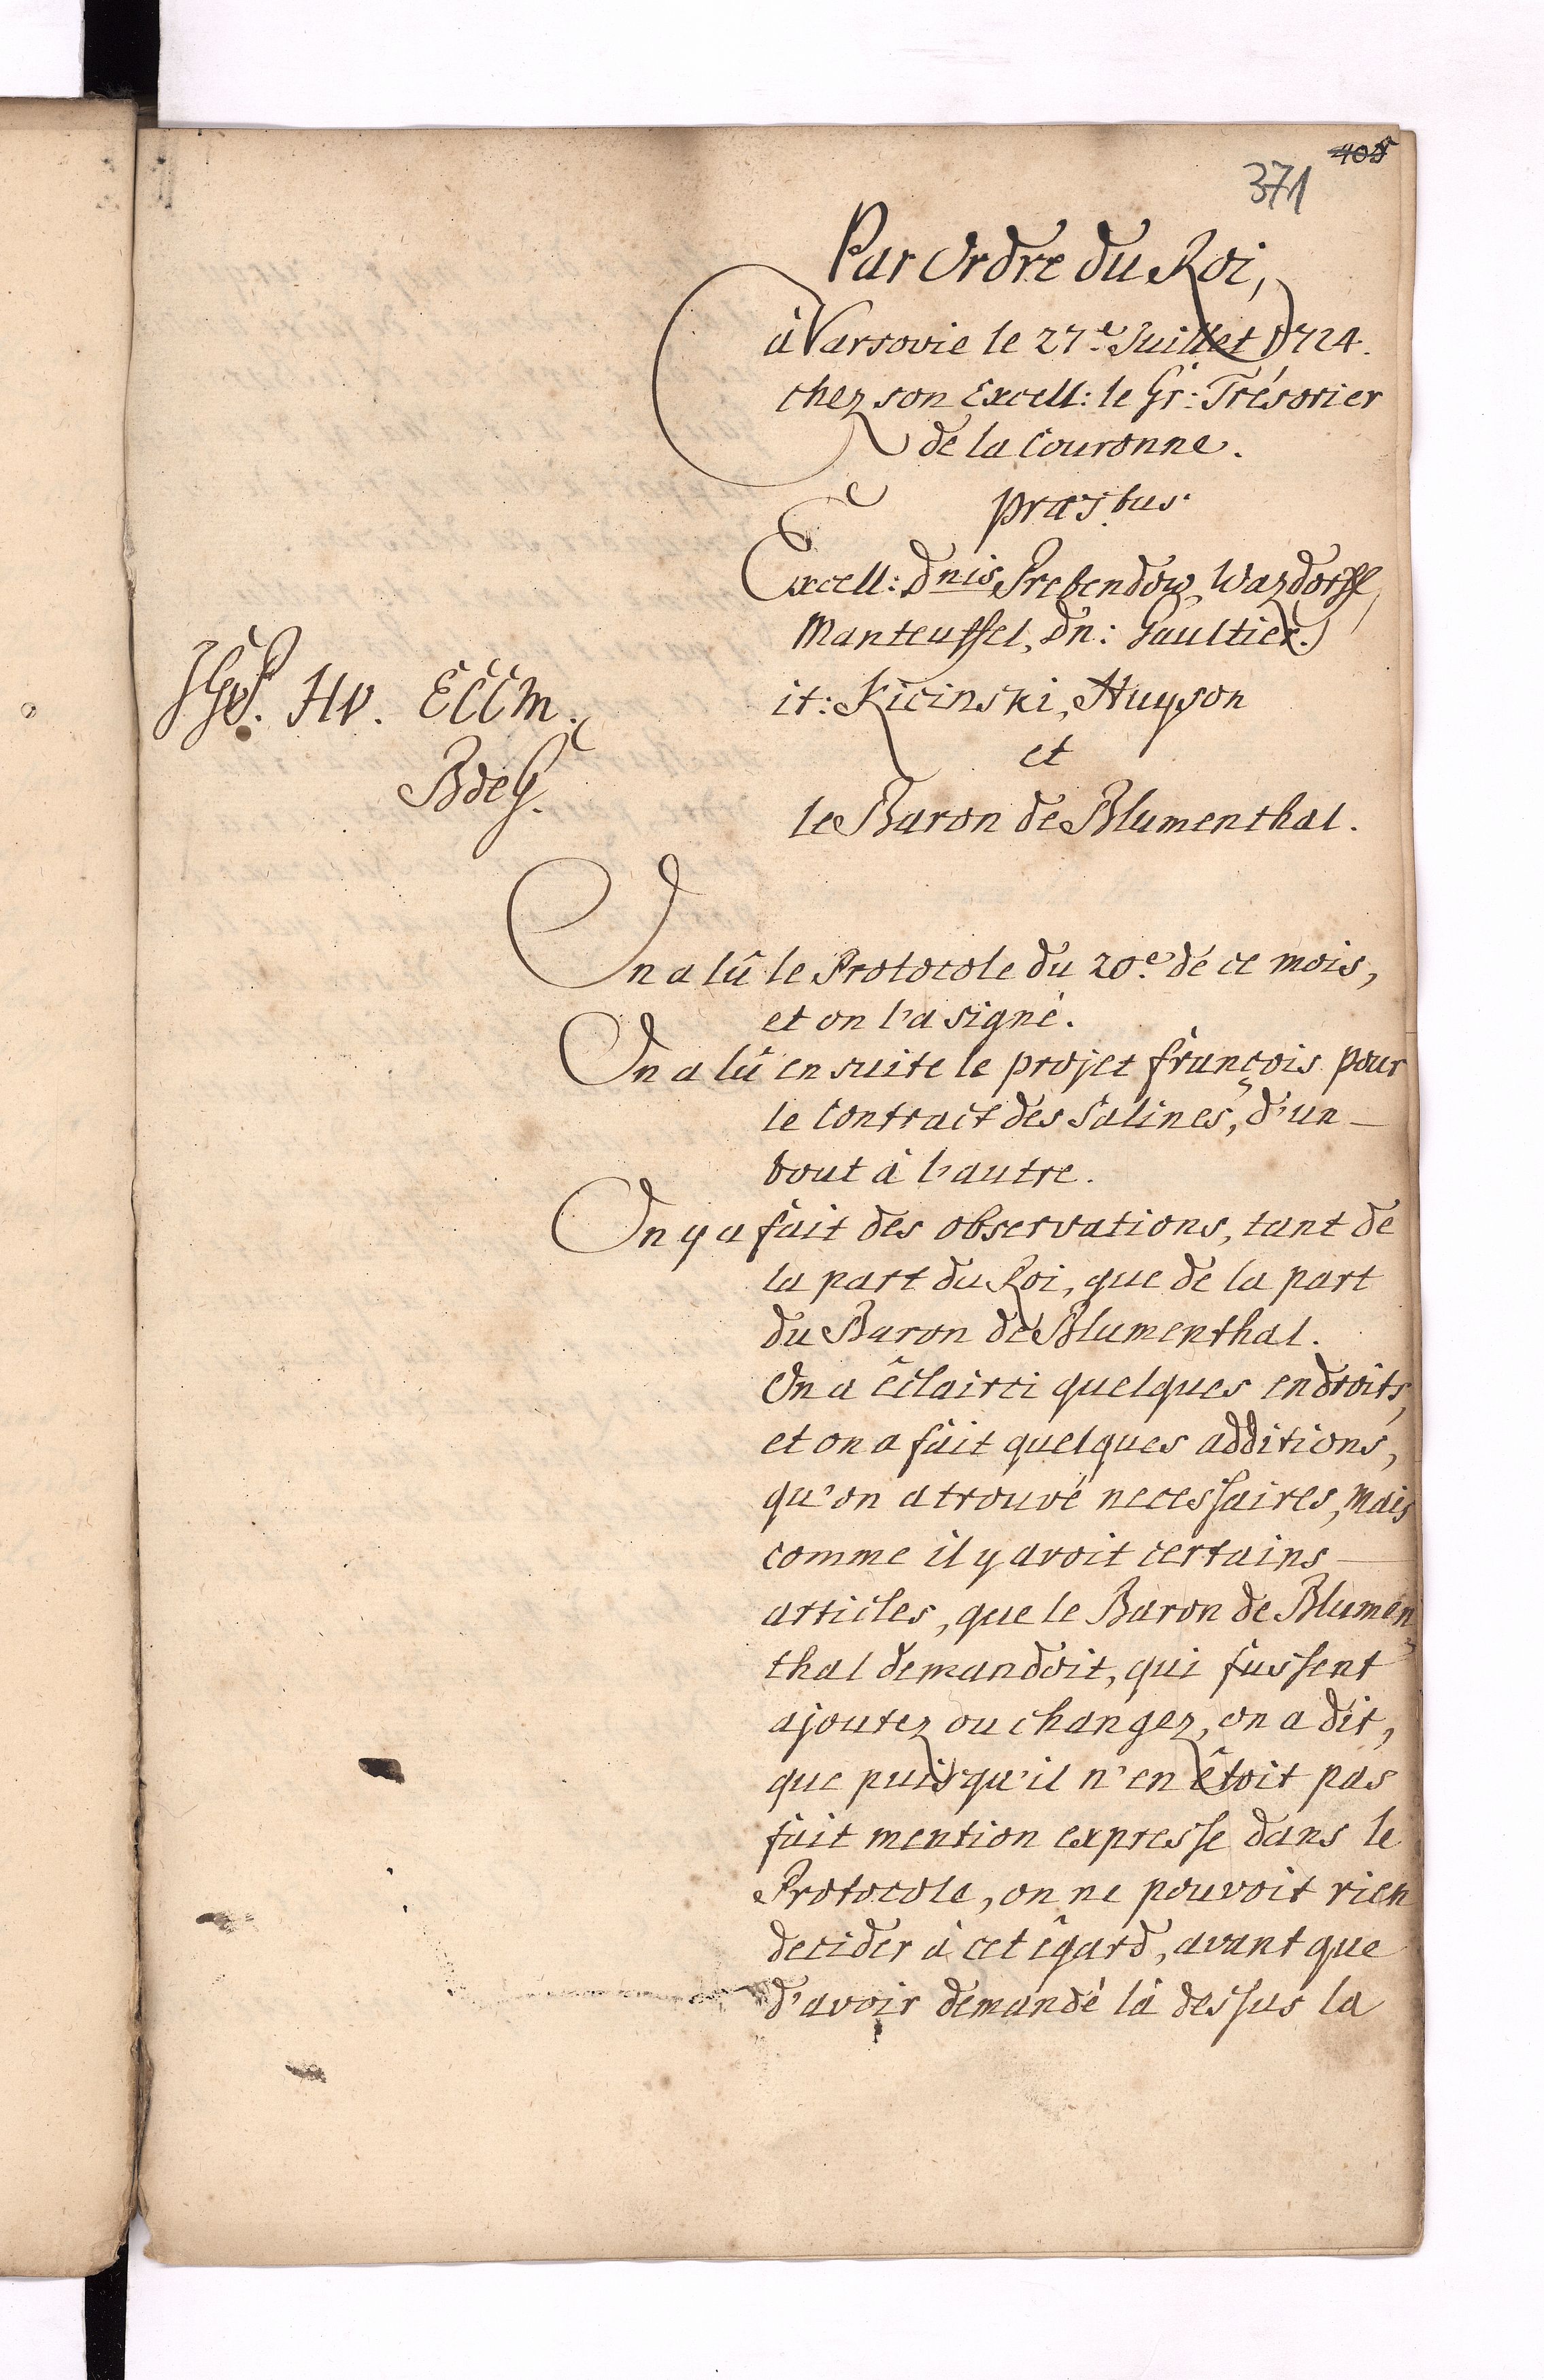 405
371
Par Ordre du Roi,
à Varsovie le 27.e Juillet 1724.
chez son Excell: le Gr: Trésorier
de la Couronne.
præs.bus
Excell: Dnis Prebendow, Wazdorff,
Manteuffel, Dn: Gaultier.
it: Kicinski, Huyson
et
le Baron de Blumenthal.
HV. ECCM.
BdeG.
On a lû le Protocole du 20.e de ce mois,
et on l'a signé.
On a lû en suite le projet françois pour
le Contract des Salines, d'un
bout à l'autre.
On y a fait des observations, tant de
la part du Roi, que de la part
du Baron de Blumenthal.
On a êclairci quelques endroits,
et on a fait quelques additions,
qu'on a trouvé necessaires, mais
comme il y avoit certains
articles, que le Baron de Blumen
thal demandoit, qui fussent
ajoutez ou changez, on a dit,
que puisqu'il n'en êtoit pas
fait mention expresse dans le
Protocole, on ne pouvoit rien
decider à cet êgard, avant que
d'avoir demandé là dessus la